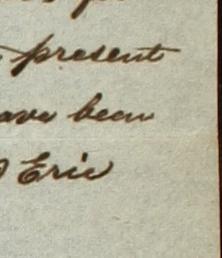 present
have been
Eric